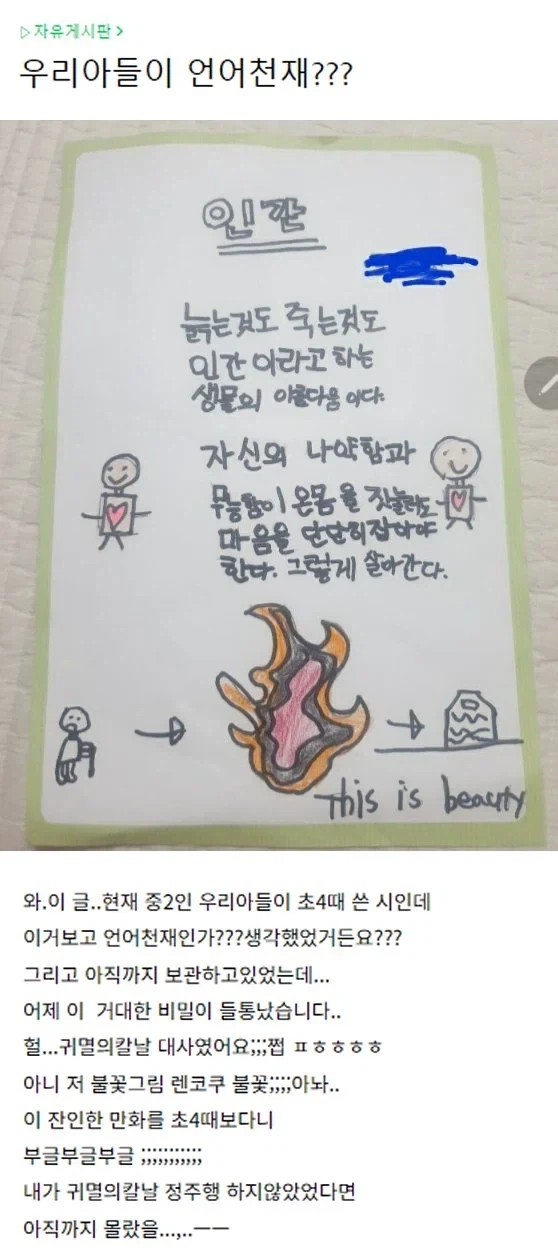 ▷자유게시판 >
우리아들이 언어천재???
인간
늙는것도 죽는것도
인간이라고 하는
생물의 아름다움 이다.
자신의 나약함과
무능함이 온몸을 짓눌러도
마음을 단단히잡아야
한다. 그렇게 살아간다.
This is beauty
와.이 글..현재 중2인 우리아들이 초4때 쓴 시인데
이거보고 언어천재인가???생각했었거든요???
그리고 아직까지 보관하고있었는데...
어제 이 거대한 비밀이 들통났습니다..
헐...귀멸의칼날 대사였어요;;;쩝 ㅍㅎㅎㅎㅎ
아니 저 불꽃그림 렌코쿠 불꽃;;;;아놔..
이 잔인한 만화를 초4때보다니
부글부글부글 ;;;;;;;;;;;
내가 귀멸의칼날 정주행 하지않았었다면
아직까지 몰랐을...,..ㅡㅡ